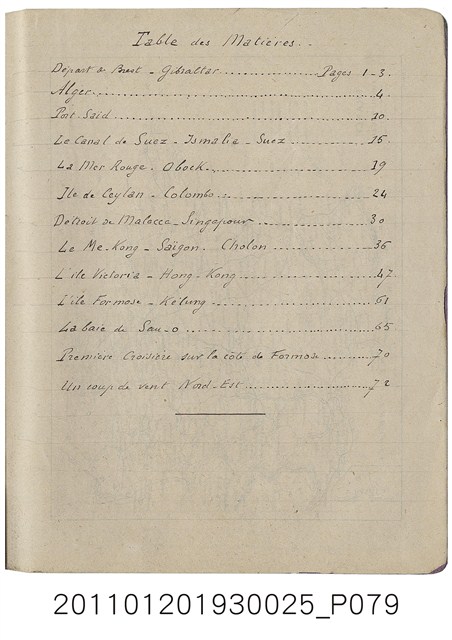 Table des Matières.
Départ de Brest - Gibraltar Pages 1-3.
Alger 4
Port Saïd 10
Le Canal de Suez - Ismalia - Suez 15
La Mer Rouge. Obock. 19
Ile de Ceylan - Colombo 24
Détroit de Malacca - Singapour 30
Le Me-Kong - Saïgon. Cholon 36
L'île Victoria - Hong-Kong 47
L'île Formose - Kélung 61
La baie de Sau-o 65
Première Croisière sur la côte de Formose 70
Un coup de vent Nord-Est 72
201101201930025_P079